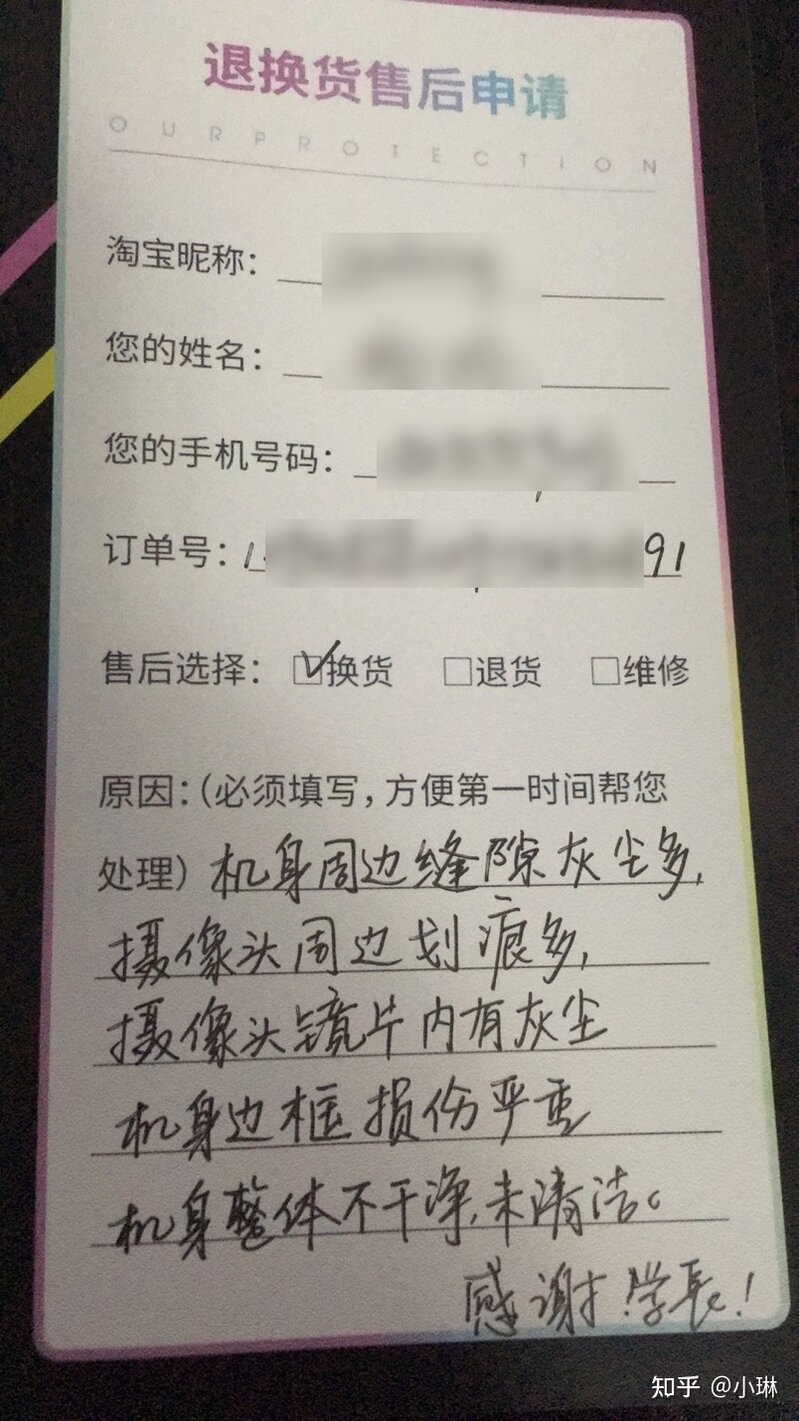 退换货售后申请
OURPROTECTION
淘宝昵称：
您的姓名：
您的手机号码：
订单号：1 91
售后选择：☑换货 □退货 □维修
原因：（必须填写，方便第一时间帮您
处理）机身周边缝隙灰尘多，
摄像头周边划痕多，
摄像头镜片内有灰尘
机身边框损伤严重
机身整体不干净，未清洁。
感谢！学长！
知乎 @小琳